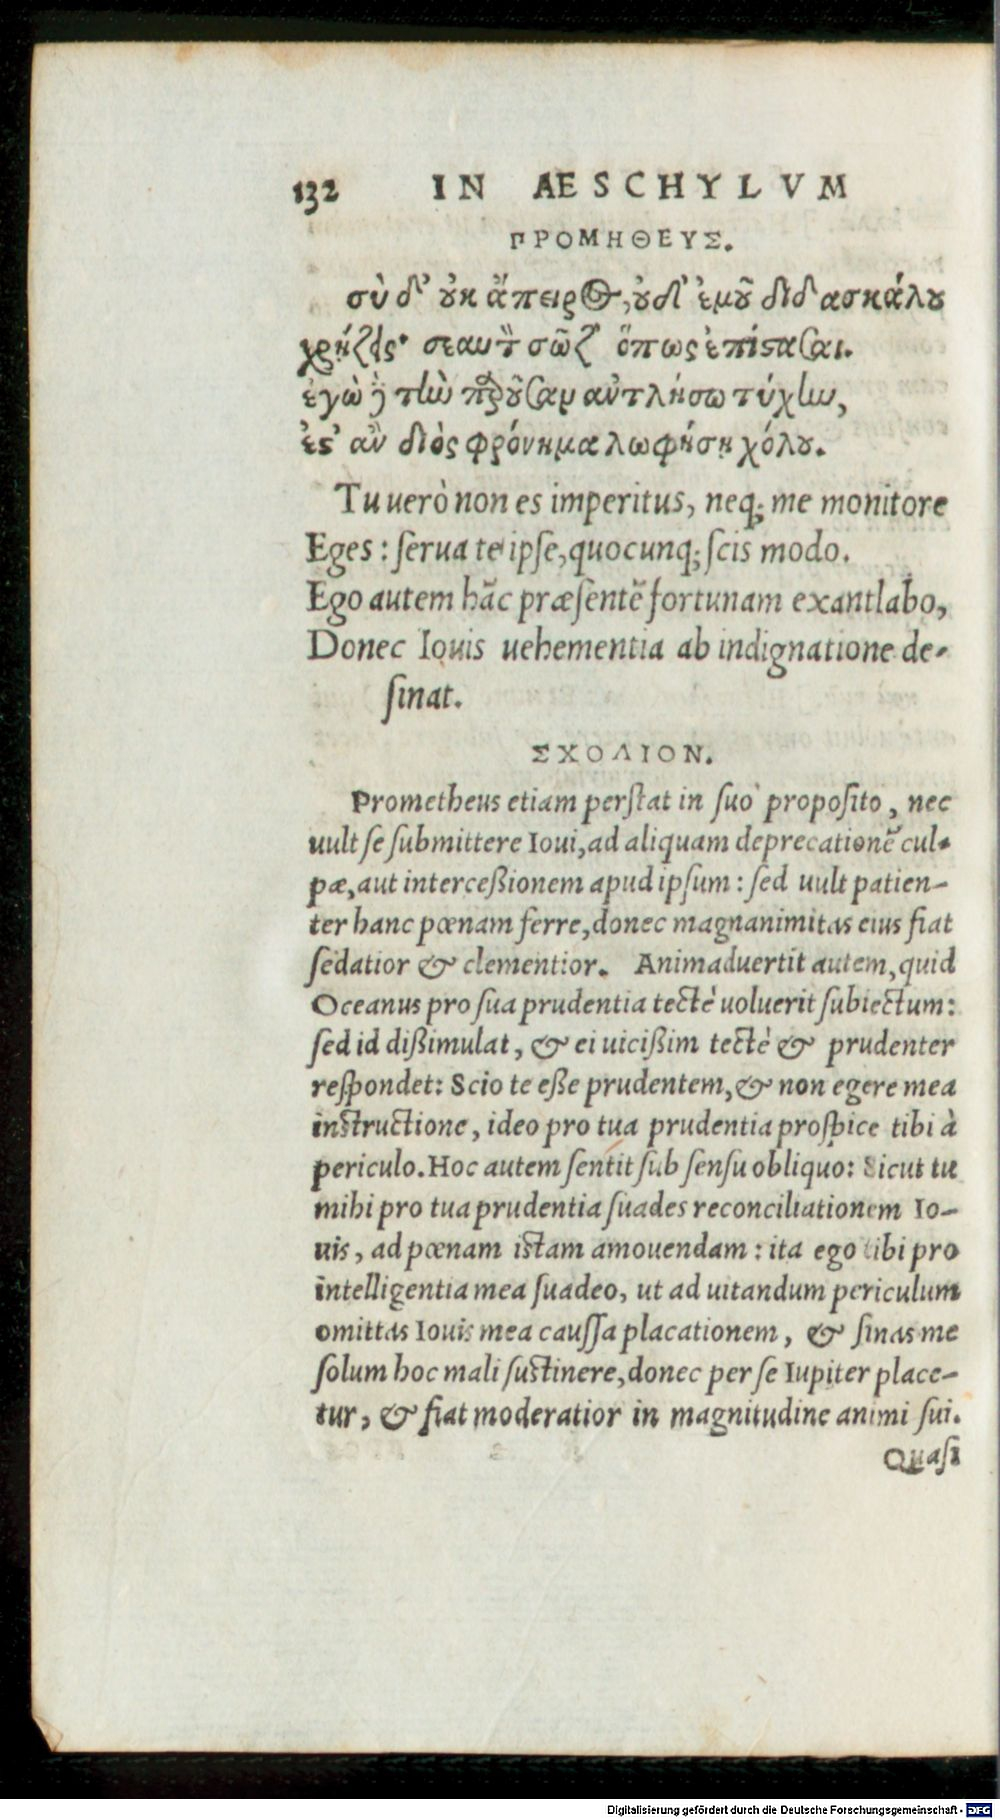 132 IN AESCHYLVM
ΠΡΟΜΗΘΕΥΣ.
σὺ δ' οὐκ ἄπειρος, οὐδ' ἐμοῦ διδασκάλου
χρῄζεις· σεαυτὸν σῶζ' ὅπως ἐπίστασαι.
ἐγὼ δὲ τὴν παροῦσαν αὐτλήσω τύχην,
ἐς τ' ἂν διὸς φρόνημα λωφήσῃ χόλου.
Tu uerò non es imperitus, neq; me monitore
Eges: ſerua te ipſe, quocunq; ſcis modo.
Ego autem hãc præſentẽ fortunam exantlabo,
Donec Iouis uehementia ab indignatione de-
ſinat.
ΣΧΟΛΙΟΝ.
Prometheus etiam perſtat in ſuo propoſito, nec
uult ſe ſubmittere Ioui, ad aliquam deprecationẽ cul-
pæ, aut interceßionem apud ipſum: ſed uult patien-
ter hanc pœnam ferre, donec magnanimitas eius fiat
ſedatior & clementior. Animaduertit autem, quid
Oceanus pro ſua prudentia tectè uoluerit ſubiectum:
ſed id dißimulat, & ei uicißim tectè & prudenter
reſpondet: Scio te eße prudentem, & non egere mea
inſtructione, ideo pro tua prudentia proſpice tibi à
periculo. Hoc autem ſentit ſub ſenſu obliquo: Sicut tu
mihi pro tua prudentia ſuades reconciliationem Io-
uis, ad pœnam iſtam amouendam: ita ego tibi pro
intelligentia mea ſuadeo, ut ad uitandum periculum
omittas Iouis mea cauſſa placationem, & ſinas me
ſolum hoc mali ſuſtinere, donec per ſe Iupiter place-
tur, & fiat moderatior in magnitudine animi ſui.
Quaſi
Digitalisierung gefördert durch die Deutsche Forschungsgemeinschaft - DFG